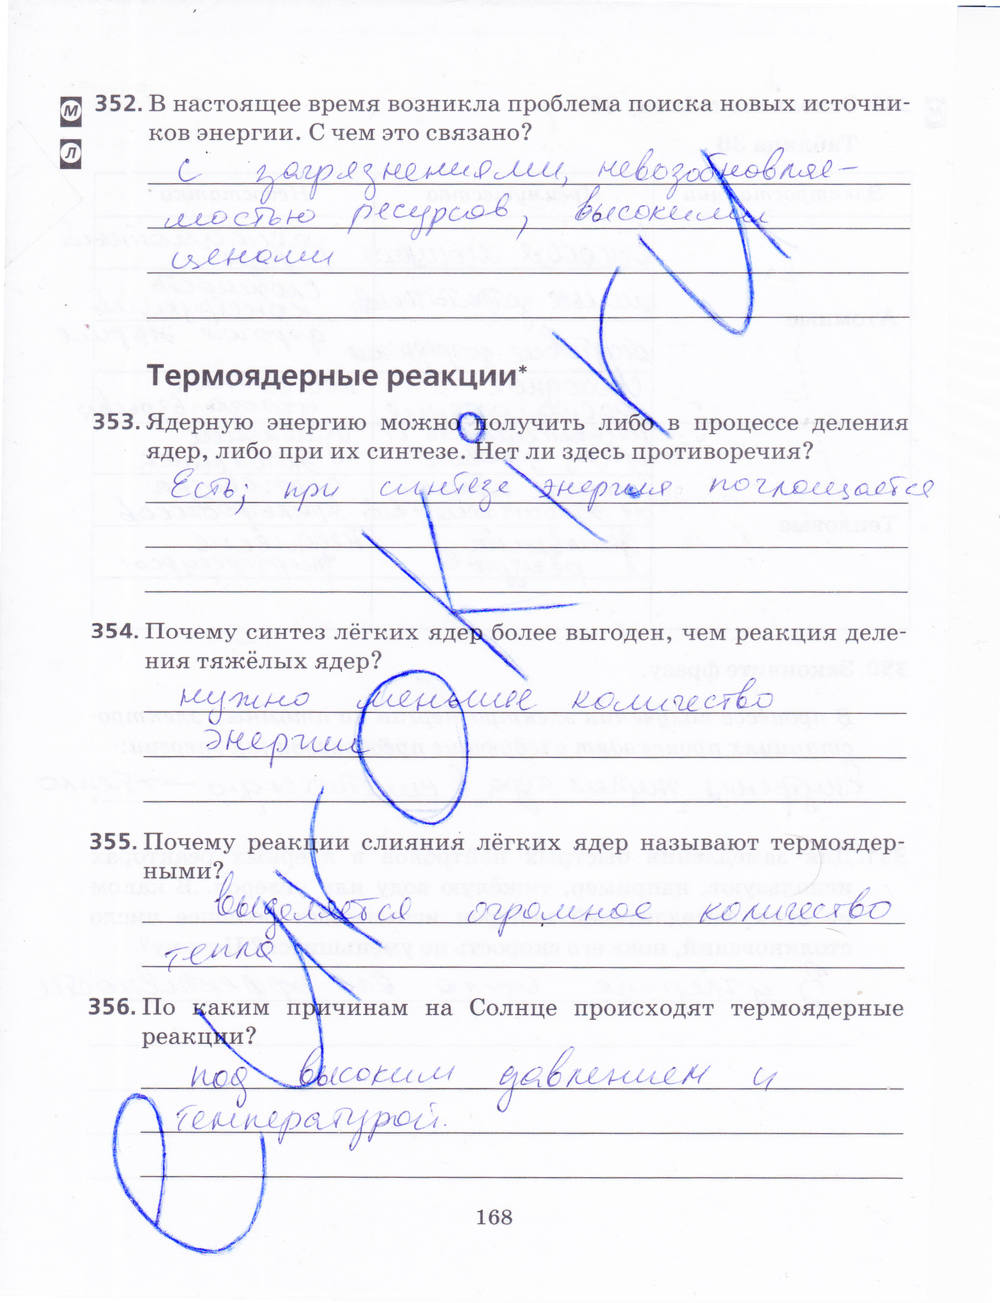 М
Л
352. В настоящее время возникла проблема поиска новых источни-
ков энергии. С чем это связано?
С загрязнениями, невозобновляе-
мостью ресурсов, высокими
ценами
Термоядерные реакции*
353. Ядерную энергию можно получить либо в процессе деления
ядер, либо при их синтезе. Нет ли здесь противоречия?
Есть; при синтезе энергия поглощается
354. Почему синтез лёгких ядер более выгоден, чем реакция деле-
ния тяжёлых ядер?
нужно меньшее количество
энергии
355. Почему реакции слияния лёгких ядер называют термоядер-
ными?
выделяется огромное количество
тепла
356. По каким причинам на Солнце происходят термоядерные
реакции?
под высоким давлением и
температурой.
168